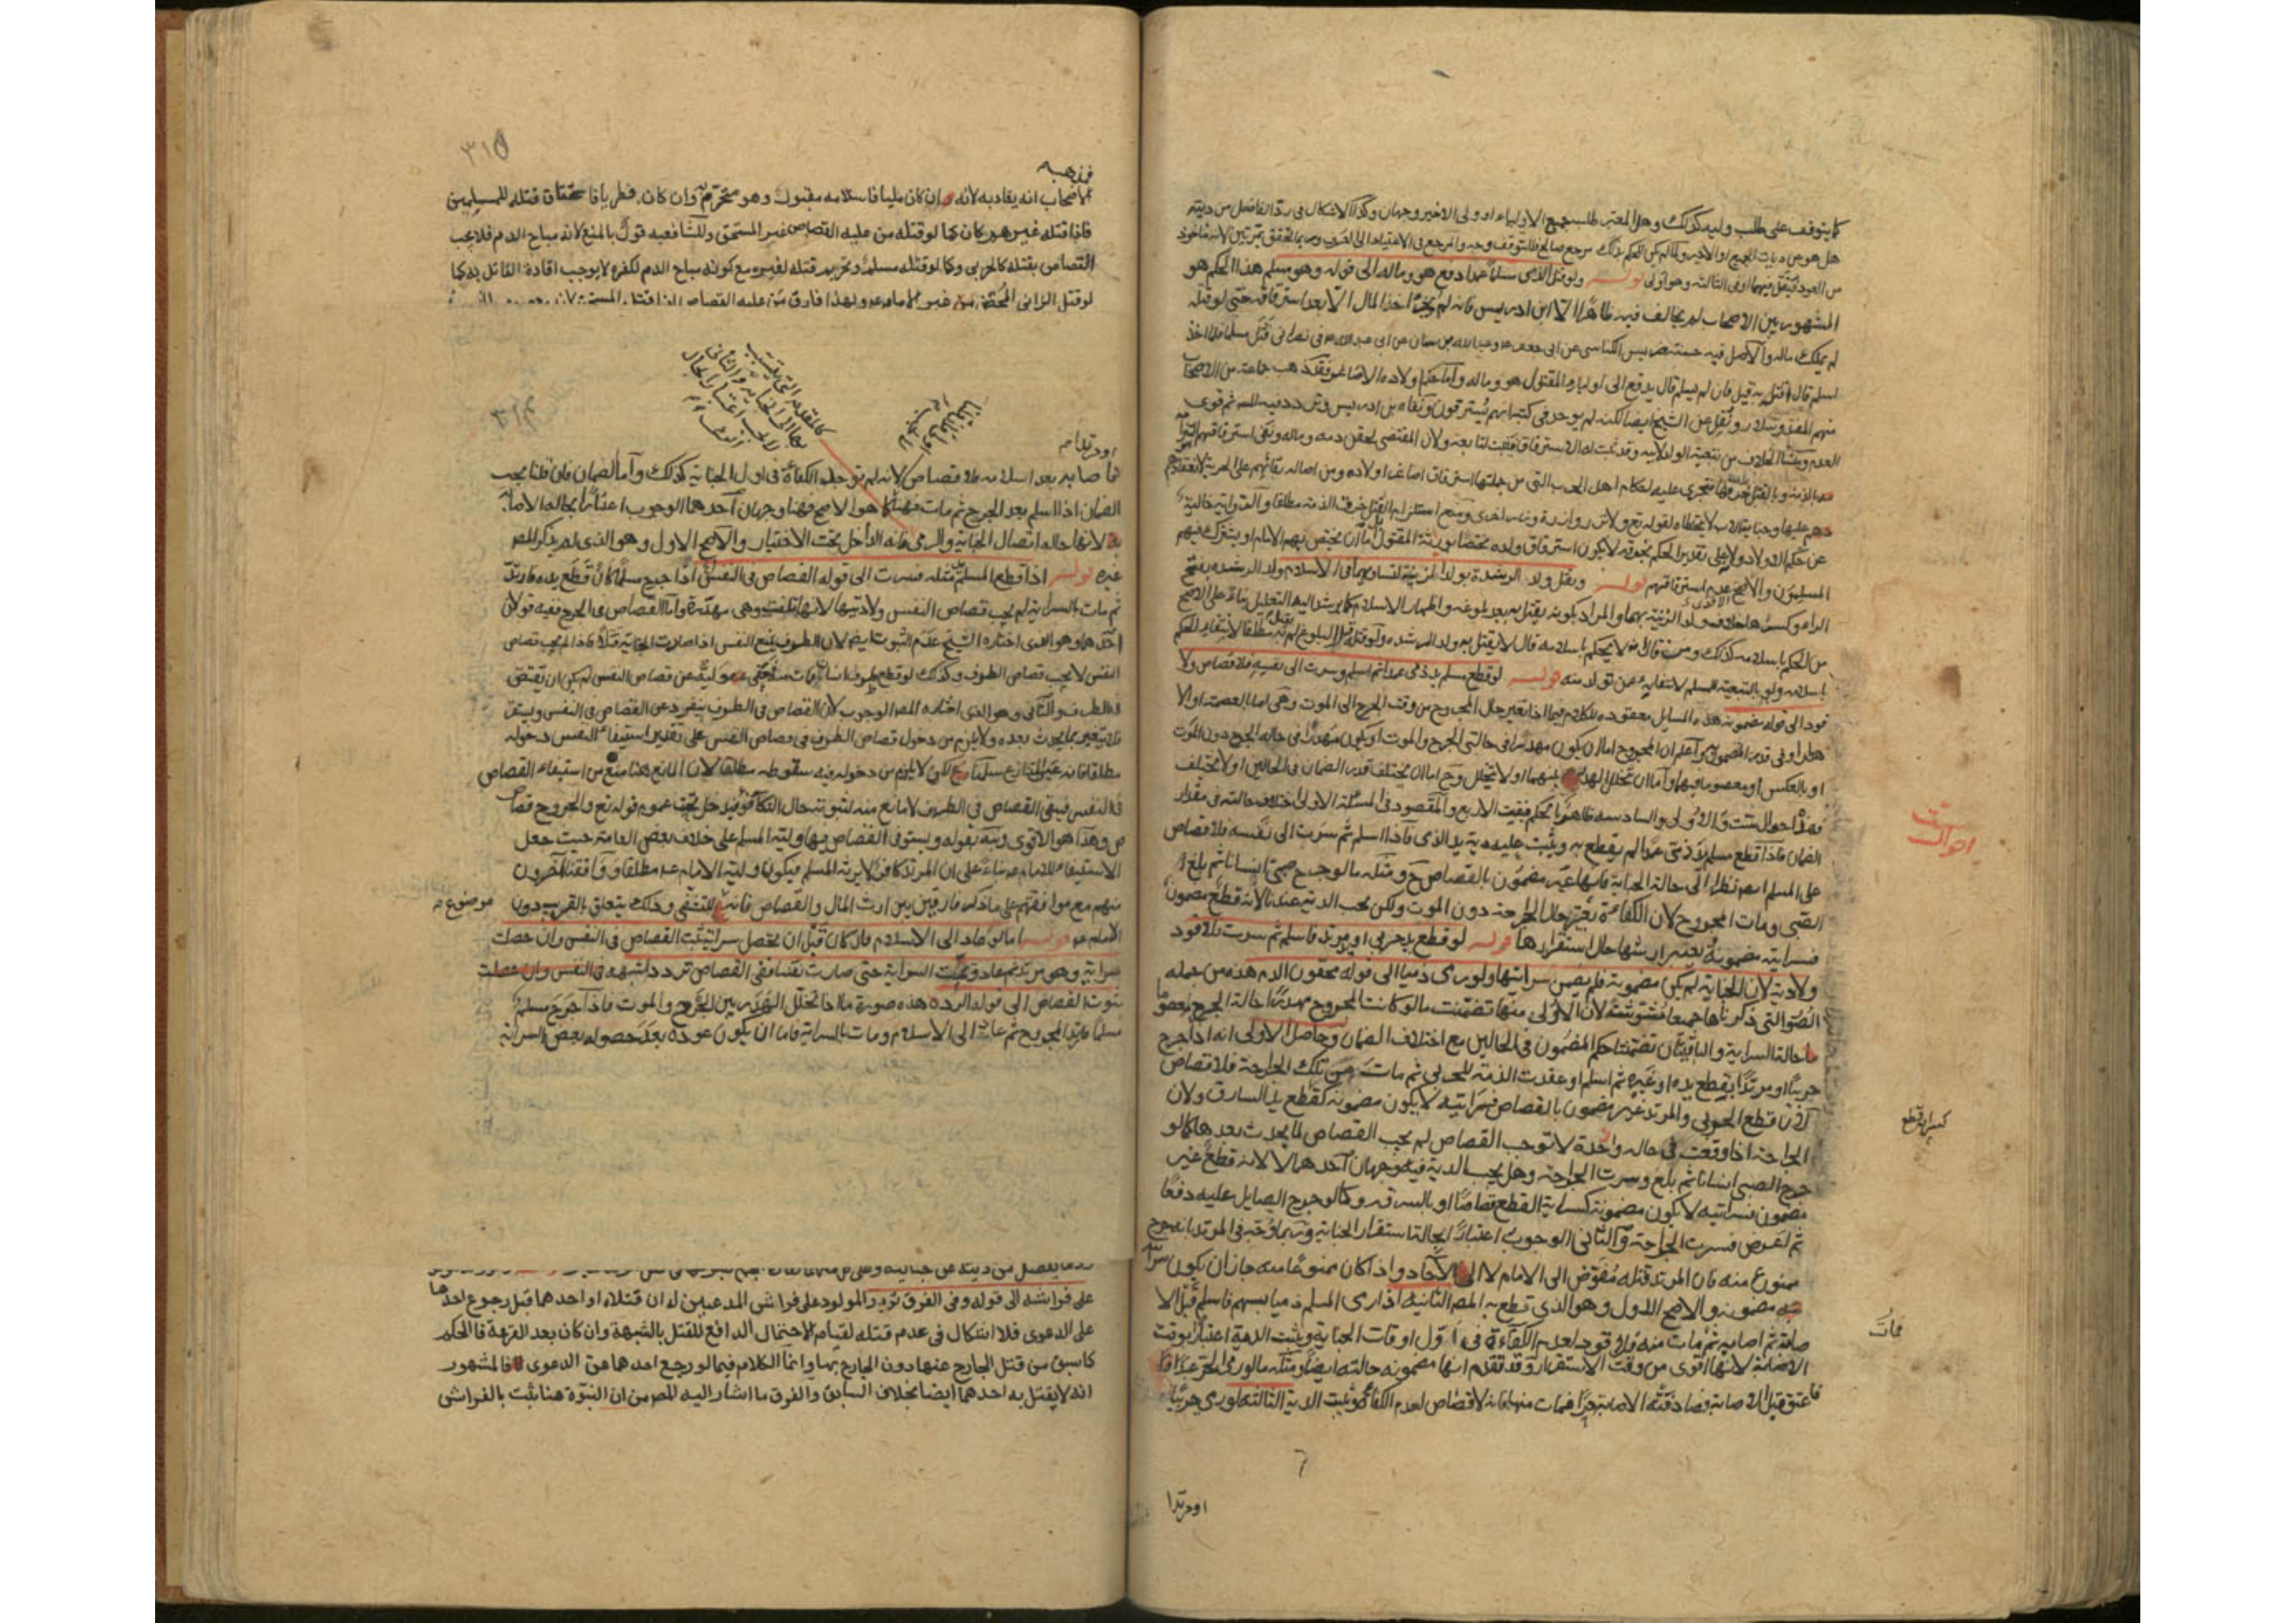 كما يتوقف على طلب وليه كذلك وهل المعتبر طلب جميع الاولياء او ولى الاخير وجهان وكذا الاشكال فى رد الفاضل من ديته
هل هو من ديات الجميع او الاخير
من العود فيقتل فيهما او فى الثالثة وهو اولى قوله ولو قتل الذمى مسلما عمدا دفع هو وماله الى قوله وهو مسلم هذا الحكم هو
المشهور بين الاصحاب لم يخالف فيه ظاهرا الا ابن ادريس فانه لم يجز اخذ المال الا بعد استرقاقه حتى لو قتله
لم يملك ماله والاصل فيه حسنة ضريس الكناسى عن ابى جعفر ع وعبد الله بن سنان عن ابى عبد الله ع فى نصرانى قتل مسلما فلما اخذ
اسلم قال اقتله به قيل فان لم يسلم قال يدفع الى اولياء المقتول هو وماله واما حكم اولاده الاصاغر فقد ذهب جماعة من الاصحاب
منهم المفيد وسلار ونقل عن الشيخ ايضا لكنه لم يوجد فى كتبه انهم يسترقون ونفاه بن ادريس وتردد فيه المص ثم قوى
العدم ومنشا الخلاف من تبعية الولد لابيه وقد ثبت له الاسترقاق فيثبت لتابعه ولان المقتضى لحقن دمه وماله ونفى استرقاقهم التزامه
بالذمة وبالقتل خرقها فتجرى عليه احكام اهل الحرب التى من جملتها استرقاق اصاغر اولاده ومن اصالة بقائهم على الحرية لانعقادهم
عليها وجناية الاب لا يتخطاه لقوله تع ولا تزر وازرة وزر اخرى ومنع استلزام القتل خرق الذمة مطلقا والرواية خالية
عن حكم الاولاد وعلى تقدير الحكم بخرقه لا يكون استرقاق ولده مختصا بورثة المقتول بل اما ان يختص بهم الامام او يشترك فيهم
المسلمون والاصح عدم استرقاقهم قوله ويقتل ولد الرشدة بولد الزنية لتساويهما فى الاسلام ولد الرشدة بفتح
الراء وكسرها خلاف ولد الزنية بهما والمراد بكونه يقتل به بعد بلوغه واظهار الاسلام كما يرشد اليه التعليل بناء على الاصح
من الحكم باسلامه كذلك ومن قال انه لا يحكم باسلامه قال لا يقتل به ولد الرشدة ولو قتله قبل البلوغ لم يقتل به مطلقا لانتفاء الحكم
باسلامه ولو بالتبعية للمسلم لانتفائه عمن تولد منه قوله لو قطع مسلم يد ذمى عمدا ثم اسلم وسرت الى نفسه فلا قصاص ولا
قود الى قوله مضمونة هذه المسايل معقودة للكلام فيما اذا تغير حال المجروح من وقت الجرح الى الموت وهى اما العصمة او الا
هدار او فى قدر المضمون واعلم ان المجروح اما ان يكون مهدرا فى حالتى الجرح والموت او يكون مهدرا فى حالة الجرح دون الموت
او بالعكس او معصوما فيهما واما ان يتخلل المهدر بينهما او لا يتخلل وح اما ان يختلف قدر الضمان فى الحالين او لا يختلف
فهذه احوال ستة والاولى والسادسة ظاهرتا الحكم فبقيت الاربع والمقصود فى المسئلة الاولى اختلاف حالته فى مقدار
الضمان فاذا قطع مسلم يد ذمى عمدا لم يقطع به ويثبت عليه دية يد الذمى فاذا اسلم ثم سرت الى نفسه فلا قصاص
على المسلم ايضا نظرا الى حالة الجناية فانها غير مضمون بالقصاص ح ومثله ما لو جرح صبى انسانا ثم بلغ
الصبى ومات المجروح لان الكفاءة تعتبر حال الجراحة دون الموت ولكن يجب الدية عندنا لانه قطع مضمون
فسرايته مضمونة يعتبر ارشها حال استقرارها قوله لو قطع يد حربى او مرتد فاسلم ثم سرت فلا قود
ولا دية لان الجناية لم يكن مضمونة فلم يضمن سرايتها ولو رمى ذميا الى قوله محقون الدم هذه من جملة
الصور التى ذكرناها جميعا مشوشة لان الاولى منها تضمنت ما لو كانت المجروح مهدرا حالة الجرح معصوما
حالة السراية والباقيتان تضمنتا حكم المضمون فى الحالين مع اختلاف الضمان وحاصل الاولى انه اذا جرح
حربيا او مرتدا بقطع يده او غيره ثم اسلم او عقدت الذمة للحربى ثم مات من تلك الجراحة فلا قصاص
لان قطع الحربى والمرتد غير مضمون بالقصاص فسرايته لا يكون مضمونة كقطع يد السارق ولان
الجراحة اذا وقعت فى حالة واحدة لا توجب القصاص لم يجب القصاص لما يحدث بعدها كما لو
جرح الصبى انسانا ثم بلغ وسرت الجراحة وهل يجب الدية فيه وجهان احدهما لا لانه قطع غير
مضمون فسرايته لا يكون مضمونة كسراية القطع قصاصا او بالسرقة وكما لو جرح الصايل عليه دفعا
ثم فسرت الجراحة والثانى الوجوب اعتبارا بحالة استقرار الجناية
ممنوع منه فان المرتد قتله مفوض الى الامام لا الى الآحاد واذا كان ممنوعا منه جاز ان يكون سرا
يته مضمونة والاصح الاول وهو الذى قطع به المص الثانية اذا رمى المسلم ذميا بسهم فاسلم قبل الا
صابة ثم اصابه ثم مات منه فلا قود لعدم الكفاءة فى اول اوقات الجناية ويثبت الدية اعتبارا بوقت
الاصابة لانها اقوى من وقت الاستقرار وقد تقدم انها مضمونة حالته ايضا ومثله ما لو رمى الحر عبدا
فاعتق قبل الاصابة فصادفته الاصابة حرا فمات منها فانه لا قصاص لعدم الكفاءة ويثبت الدية الثالثة لو رمى حربيا
او مرتدا
احوال ست
كسراية قطع
فمات
٣١٥
فمذهب
الاصحاب انه يقاد به لانه ان كان مليا فاسلامه مقبول وهو محترم وان كان فطريا فاستحقاق قتله للمسلمين
فاذا قتله غيرهم كان كما لو قتله من عليه القصاص غير المستحق وللشافعية قول بالمنع لانه مباح الدم فلا يجب
القصاص بقتله كالحربى وكما لو قتله مسلم وتحريم قتله لغيره مع كونه مباح الدم لكفره لا يوجب اقادة القاتل به كما
لو قتل الزانى المحصن من غير الامام ع ولهذا فارق من عليه القصاص اذا قتله
او مرتدا م
فاصابه بعد اسلامه فلا قصاص لانه لم توجد الكفاءة فى اول الجناية كذلك واما الضمان فان قلنا يجب
الضمان اذا اسلم بعد الجرح ثم مات فهنا وجهان احدهما الوجوب اعتبارا بحالة الاصا
بة لانها حالة اتصال الجناية والرمى فانه الداخل تحت الاختيار والاصح الاول وهو الذى لم يذكر المص
غيره قوله اذا قطع المسلم مثله فسرت الى قوله القصاص فى النفس اذا جرح مسلما كان قطع يده فارتد
ثم مات بالسراية لم يجب قصاص النفس ولا ديتها لانها تلفت وهى مهدرة واما القصاص فى الجرح ففيه قولان
احدهما وهو الذى اختاره الشيخ عدم الثبوت ايضا لان الطرف يتبع النفس اذا صارت الجناية قتلا فاذا لم يجب قصاص
النفس لا يجب قصاص الطرف وكذلك لو قطع طرف انسان فمات منه فعفى وليه عن قصاص النفس لم يكن ان يقتص
فى الطرف والثانى وهو الذى اختاره المص الوجوب لان القصاص فى الطرف ينفرد عن القصاص فى النفس ويستقر
فلا يتغير بما يحدث بعده ولا يلزم من دخول قصاص الطرف فى قصاص النفس على تقدير استيفاء النفس دخوله
مطلقا لا يلزم من دخوله فيه سقوطه مطلقا لان المانع هنا منع من استيفاء القصاص
فى النفس فيبقى القصاص فى الطرف لا مانع منه لثبوته حال التكافؤ فيدخل تحت عموم قوله تع والجروح قصا
ص وهذا هو الاقوى ونبه بقوله ويستوفى القصاص فيها وليه المسلم على خلاف بعض العامة حيث جعل
الاستيفاء للامام ع بناء على ان المرتد كافر لا يرثه المسلم فيكون وليه الامام ع مطلقا ووافقنا آخرون
منهم مع موافقتهم على ما ذكر فارقين بين ارث المال والقصاص فانه للتشفى وذلك يتعلق بالقريب دون
موضوع
الامام ع قوله اما لو عاد الى الاسلام فان كان قبل ان يحصل سراية ثبت القصاص فى النفس وان حصلت
سراية وهو مرتد ثم عاد وتمت السراية حتى صارت نفسا ففى القصاص تردد اشبهه
ثبوت القصاص الى قوله الردة هذه صورة ما اذا تخلل المهدر بين الجرح والموت فاذا جرح مسلم
مسلما فارتد المجروح ثم عاد الى الاسلام ومات بالسراية فاما ان يكون عوده بعد حصول بعض السراية
على فراشه الى قوله وفى الفرق تردد المولود على فراش المدعيين له ان قتلاه او احدهما قبل رجوع احدهما
على الدعوى فلا اشكال فى عدم قتله لقيام الاحتمال الدافع للقتل بالشبهة وان كان بعد القرعة فالحكم
كما سبق من قتل الخارج عنها دون الخارج بها وانما الكلام فيما لو رجع احدهما عن الدعوى فالمشهور
انه لا يقتل به احدهما ايضا بخلاف السابق والفرق ما اشار اليه المص من ان البنوة هنا يثبت بالفراش